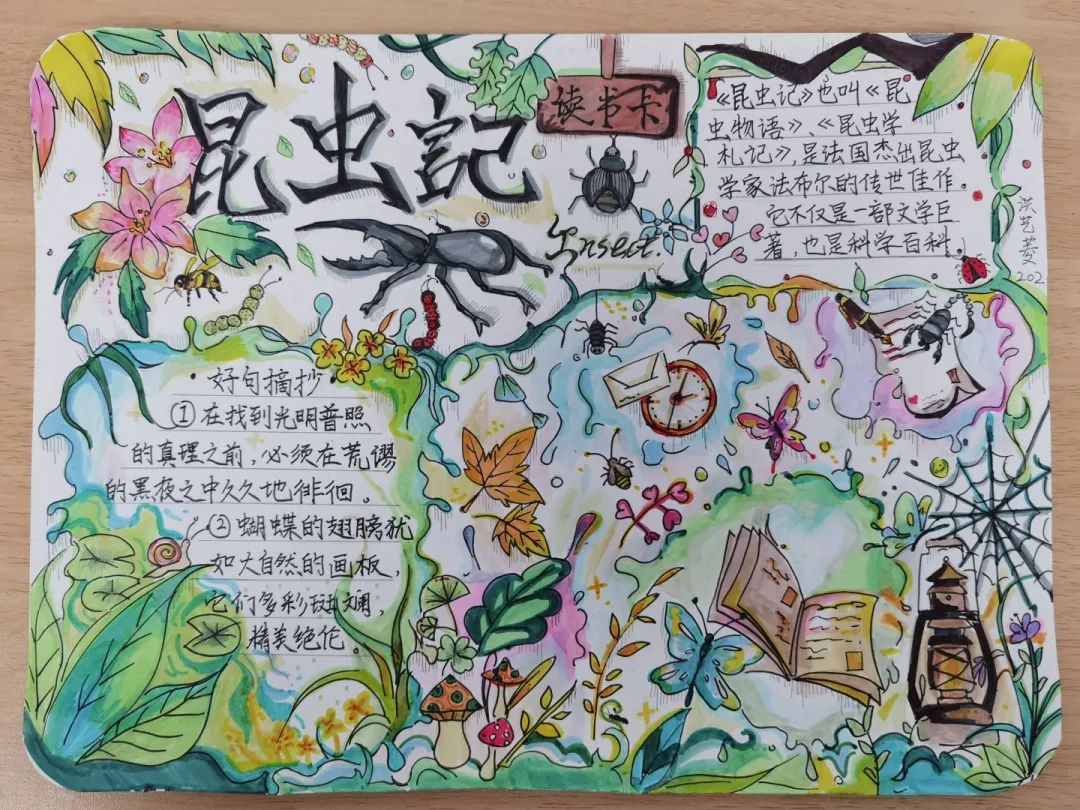 昆虫記
读书卡
Insect.
《昆虫记》也叫《昆
虫物语》、《昆虫学
札记》，是法国杰出昆虫
学家法布尔的传世佳作。
它不仅是一部文学巨
著，也是科学百科。
洪艺菱
202
·好句摘抄·
①在找到光明普照
的真理之前，必须在荒谬
的黑夜之中久久地徘徊。
②蝴蝶的翅膀犹
如大自然的画板，
它们多彩斑斓，
精美绝伦。